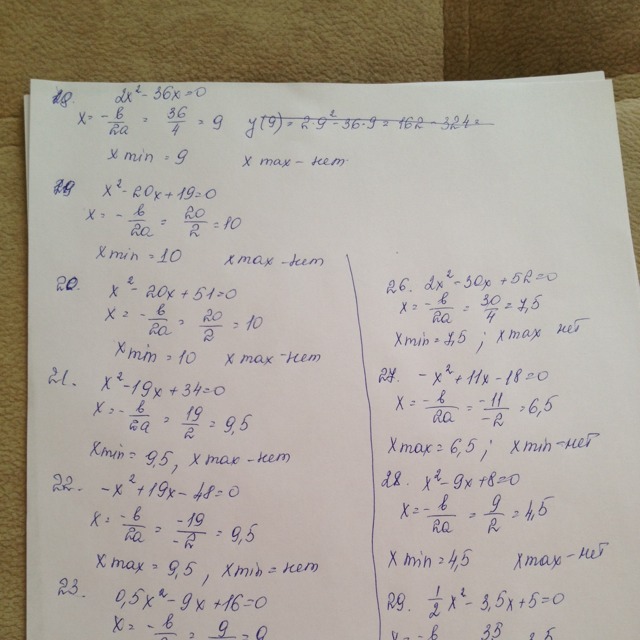 18. 2x² - 36x = 0
x = -b/2a = 36/4 = 9 y(9) = 2·9² - 36·9 = 162 - 324 =
x min = 9 x max - нет
19 x² - 20x + 19 = 0
x = -b/2a = 20/2 = 10
x min = 10 x max - нет
20. x² - 20x + 51 = 0
x = -b/2a = 20/2 = 10
x min = 10 x max - нет
21. x² - 19x + 34 = 0
x = -b/2a = 19/2 = 9,5
x min = 9,5, x max - нет
22. -x² + 19x - 48 = 0
x = -b/2a = -19/-2 = 9,5
x max = 9,5, x min = нет
23. 0,5x² - 9x + 16 = 0
x = -b/2a = 9/ = 9
26. 2x² - 30x + 52 = 0
x = -b/2a = 30/4 = 7,5
x min = 7,5; x max нет
27. -x² + 11x - 18 = 0
x = -b/2a = -11/-2 = 6,5
x max = 6,5; x min - нет
28. x² - 9x + 8 = 0
x = -b/2a = 9/2 = 4,5
x min = 4,5 x max - нет
29. 1/2 x² - 3,5x + 5 = 0
x = -b 3,5 3,5